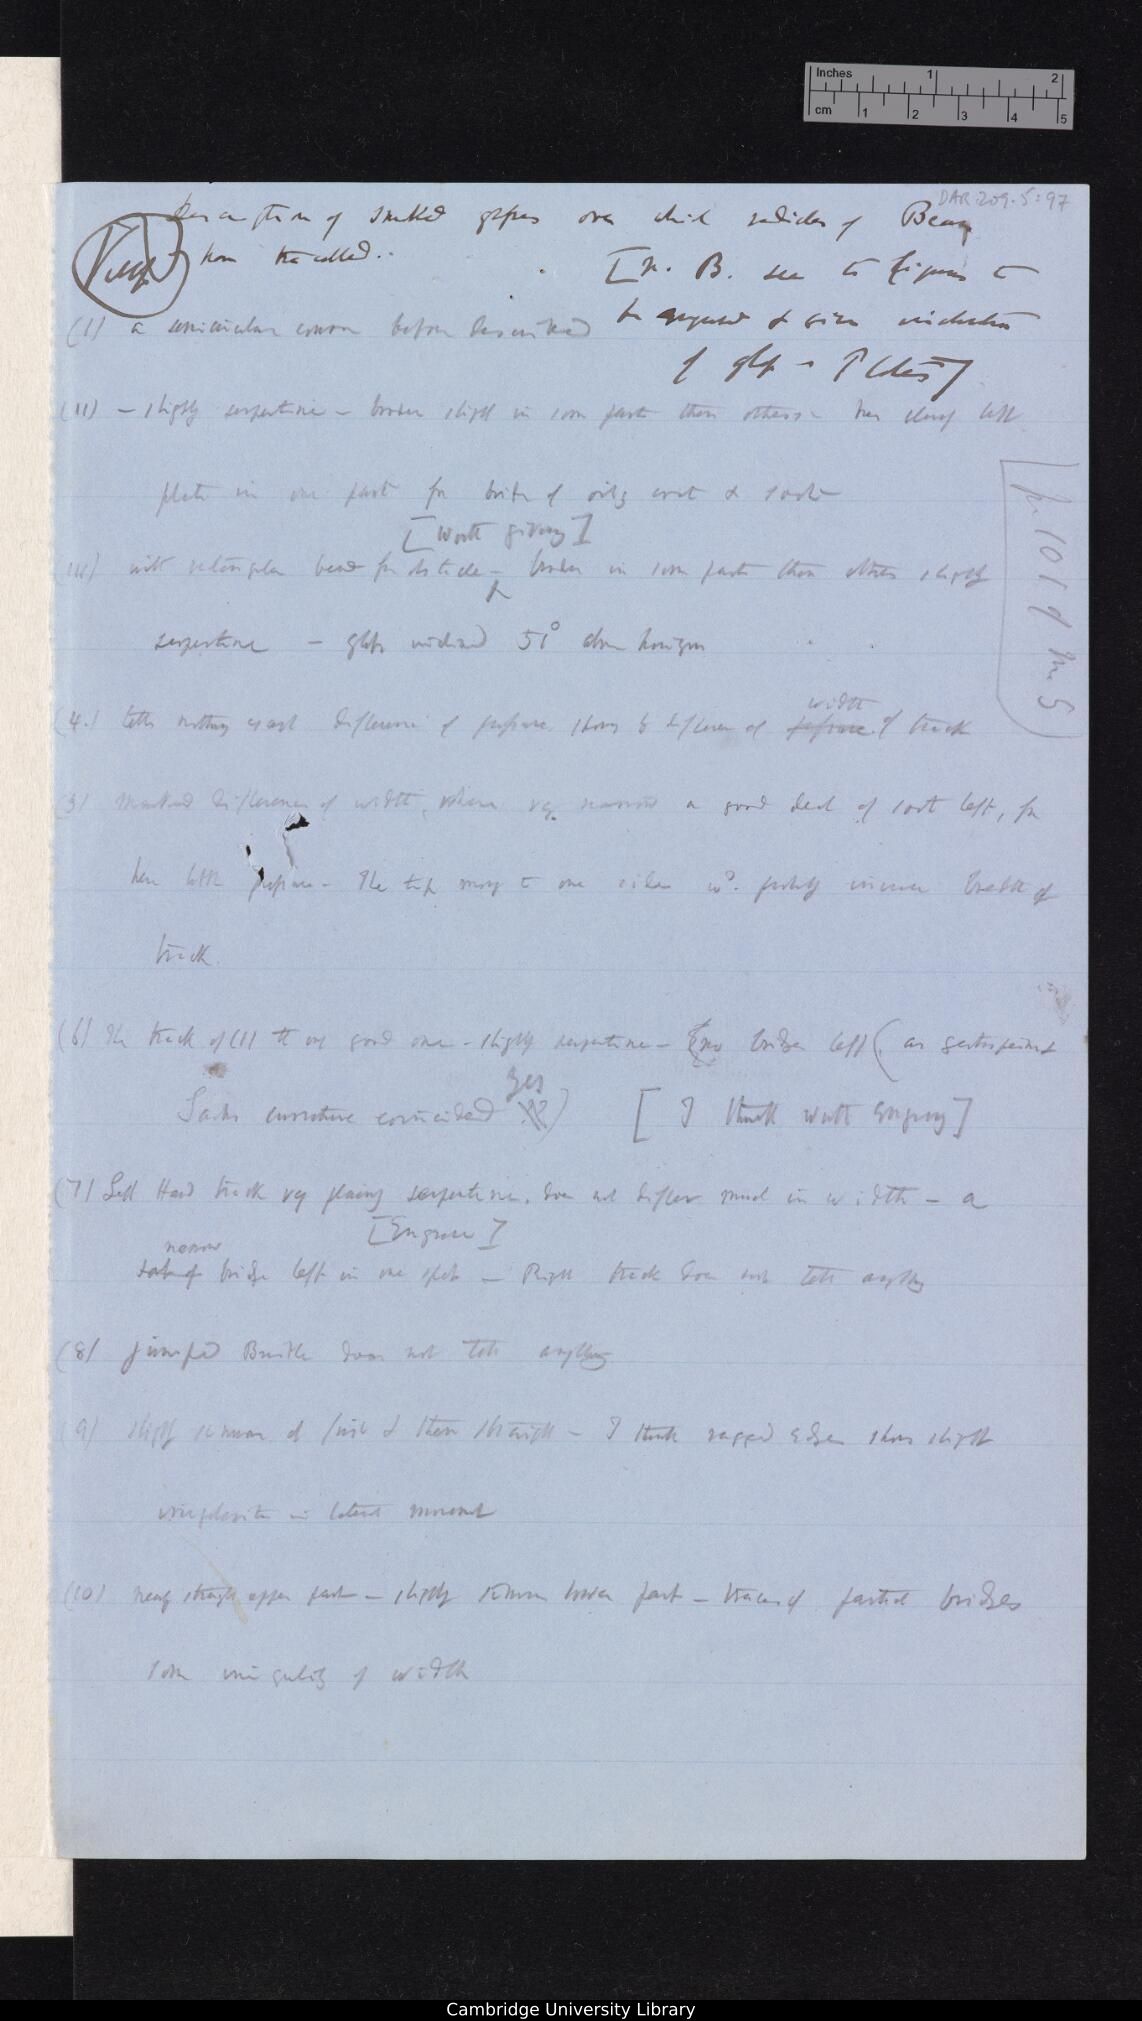 DAR 209.5:97
Description of smoked glasses over which radicles of Beans
have travelled..
[N. B. see to figures to
be engraved & give inclination
of glass in Plates]
(1) a semicircular course before described
(11) — slightly serpentine — broader slightly in some parts than others — has clearly left
plate in one part for bits of oily and & soot
[Worth giving]
(111) with rectangular bend for obstacle — broader in some parts than others slightly
serpentine — glass inclined 51° above horizon
(4.) tells nothing except difference of pressure shown by difference of width of track
(5) Marked difference of width, where very narrow a good deal of soot left, for
here little pressure — The tip moving to one side wd. partly increase breadth of
track.
(6) The track of (1) the only good one — slightly serpentine — no bridge left (as geotropism &
Sachs curvature coincided
yes
[I think worth Engraving]
(7) Left Hand track very plainly serpentine, does not differ much in width — a
[Engrave]
narrow
bridge left in one spot — Right track does not tell anything
(8) jumped Bristle does not tell anything
(9) slightly sinuous at first & then straight — I think ragged edges show slight
irregularities in lateral movement
(10) nearly straight upper part — slightly sinuous lower part — traces of partial bridges
some irregularity of width
Inches 1 2
cm 1 2 3 4 5
Cambridge University Library